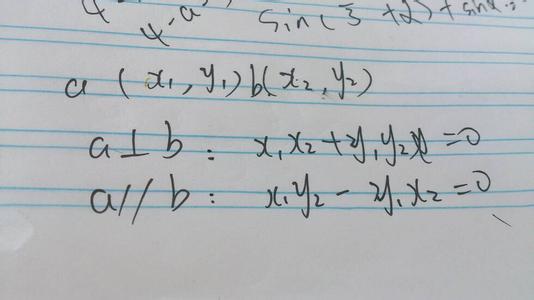 sin(
a (x₁, y₁) b(x₂, y₂)
a⊥b: x₁x₂+y₁y₂=0
a//b: x₁y₂-y₁x₂=0